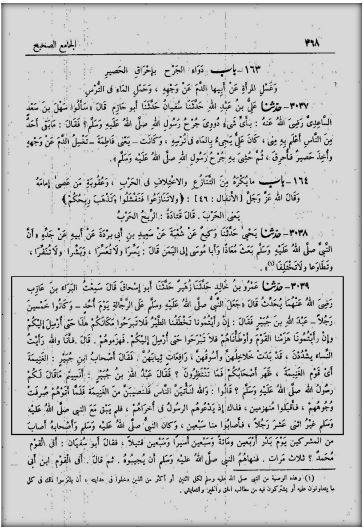 ٣٦٨
الجامع الصحيح
١٦٣ - باب دَوَاءِ الجَرْحِ بِإِحْرَاقِ الحَصِيرِ
وَغَسْلِ المَرْأَةِ عَنْ أَبِيهَا الدَّمَ عَنْ وَجْهِهِ ، وَحَمْلِ المَاءِ فى التُّرْسِ
٣٠٣٧ - حدثنا عَلِىُّ بْنُ عَبْدِ اللهِ حَدَّثَنَا سُفْيَانُ حَدَّثَنَا أَبُو حَازِمٍ قَالَ «سَأَلُوا سَهْلَ بْنَ سَعْدٍ
السَّاعِدِىَّ رَضِىَ اللهُ عَنْهُ : بِأَىِّ شَىْءٍ دُووِىَ جُرْحُ رَسُولِ اللهِ صَلَّى اللهُ عَلَيْهِ وَسَلَّمَ ؟ فَقَالَ : مَابَقِىَ أَحَدٌ
مِنَ النَّاسِ أَعْلَمُ بِهِ مِنِّى ، كَانَ عَلِىٌّ يَجِىءُ بِالمَاءِ فى تُرْسِهِ ، وَكَانَتْ - يَعْنِى فَاطِمَةَ - تَغْسِلُ الدَّمَ عَنْ وَجْهِهِ
وَأُخِذَ حَصِيرٌ فَأُحْرِقَ ، ثُمَّ حُشِىَ بِهِ جُرْحُ رَسُولِ اللهِ صَلَّى اللهُ عَلَيْهِ وَسَلَّمَ» .
١٦٤ - باب مَا يُكْرَهُ مِنَ التَّنَازُعِ وَالاخْتِلَافِ فى الحَرْبِ ، وَعُقُوبَةِ مَنْ عَصَى إِمَامَهُ
وَقَالَ اللهُ عَزَّ وَجَلَّ [الأنفال : ٤٦] : ﴿وَلَا تَنَازَعُوا فَتَفْشَلُوا وَتَذْهَبَ رِيحُكُمْ﴾
يَعْنِى الحَرْبَ . قَالَ قَتَادَةُ : الرِّيحُ الحَرْبُ
٣٠٣٨ - حدثنا يَحْيَى حَدَّثَنَا وَكِيعٌ عَنْ شُعْبَةَ عَنْ سَعِيدِ بْنِ أَبِى بُرْدَةَ عَنْ أَبِيهِ عَنْ جَدِّهِ «أَنَّ
النَّبِىَّ صَلَّى اللهُ عَلَيْهِ وَسَلَّمَ بَعَثَ مُعَاذًا وَأَبَا مُوسَى إِلَى اليَمَنِ قَالَ : يَسِّرَا وَلَا تُعَسِّرَا ، وَبَشِّرَا وَلَا تُنَفِّرَا ،
وَتَطَاوَعَا وَلَا تَخْتَلِفَا» (١) .
٣٠٣٩ - حدثنا عَمْرُو بْنُ خَالِدٍ حَدَّثَنَا زُهَيْرٌ حَدَّثَنَا أَبُو إِسْحَاقَ قَالَ سَمِعْتُ البَرَاءَ بْنَ عَازِبٍ
رَضِىَ اللهُ عَنْهُمَا يُحَدِّثُ قَالَ «جَعَلَ النَّبِىُّ صَلَّى اللهُ عَلَيْهِ وَسَلَّمَ عَلَى الرَّجَّالَةِ يَوْمَ أُحُدٍ - وَكَانُوا خَمْسِينَ
رَجُلًا - عَبْدَ اللهِ بْنَ جُبَيْرٍ فَقَالَ : إِنْ رَأَيْتُمُونَا تَخْطَفُنَا الطَّيْرُ فَلَا تَبْرَحُوا مَكَانَكُمْ هٰذَا حَتَّى أُرْسِلَ إِلَيْكُمْ
وَإِنْ رَأَيْتُمُونَا هَزَمْنَا القَوْمَ وَأَوْطَأْنَاهُمْ فَلَا تَبْرَحُوا حَتَّى أُرْسِلَ إِلَيْكُمْ . فَهَزَمُوهُمْ . قَالَ : فَأَنَا وَاللهِ رَأَيْتُ
النِّسَاءَ يَشْتَدِدْنَ ، قَدْ بَدَتْ خَلَاخِلُهُنَّ وَأَسْوُقُهُنَّ ، رَافِعَاتٍ ثِيَابَهُنَّ . فَقَالَ أَصْحَابُ ابْنِ جُبَيْرٍ : الغَنِيمَةَ
أَىْ قَوْمِ الغَنِيمَةَ ، ظَهَرَ أَصْحَابُكُمْ فَمَا تَنْتَظِرُونَ ؟ فَقَالَ عَبْدُ اللهِ بْنُ جُبَيْرٍ : أَنَسِيتُمْ مَاقَالَ لَكُمْ
رَسُولُ اللهِ صَلَّى اللهُ عَلَيْهِ وَسَلَّمَ ؟ قَالُوا : وَاللهِ لَنَأْتِيَنَّ النَّاسَ فَلَنُصِيبَنَّ مِنَ الغَنِيمَةِ فَلَمَّا أَتَوْهُمْ صُرِفَتْ
وُجُوهُهُمْ ، فَأَقْبَلُوا مُنْهَزِمِينَ ، فَذَاكَ إِذْ يَدْعُوهُمُ الرَّسُولُ فى أُخْرَاهُمْ ، فَلَمْ يَبْقَ مَعَ النَّبِىِّ صَلَّى اللهُ عَلَيْهِ
وَسَلَّمَ غَيْرُ اثْنَىْ عَشَرَ رَجُلًا ، فَأَصَابُوا مِنَّا سَبْعِينَ ، وَكَانَ النَّبِىُّ صَلَّى اللهُ عَلَيْهِ وَسَلَّمَ وَأَصْحَابُهُ أَصَابَ
مِنَ المُشْرِكِينَ يَوْمَ بَدْرٍ أَرْبَعِينَ وَمِائَةً وَسَبْعِينَ أَسِيرًا وَسَبْعِينَ قَتِيلًا . فَقَالَ أَبُو سُفْيَانَ : أَفِى القَوْمِ
مُحَمَّدٌ ؟ ثَلَاثَ مَرَّاتٍ . فَنَهَاهُمُ النَّبِىُّ صَلَّى اللهُ عَلَيْهِ وَسَلَّمَ أَنْ يُجِيبُوهُ . ثُمَّ قَالَ : أَفِى القَوْمِ ابْنُ أَبِى
(١) وهذه الوصية من النبى صلى الله عليه وسلم لكل اثنين أو أكثر من الذين دعوا